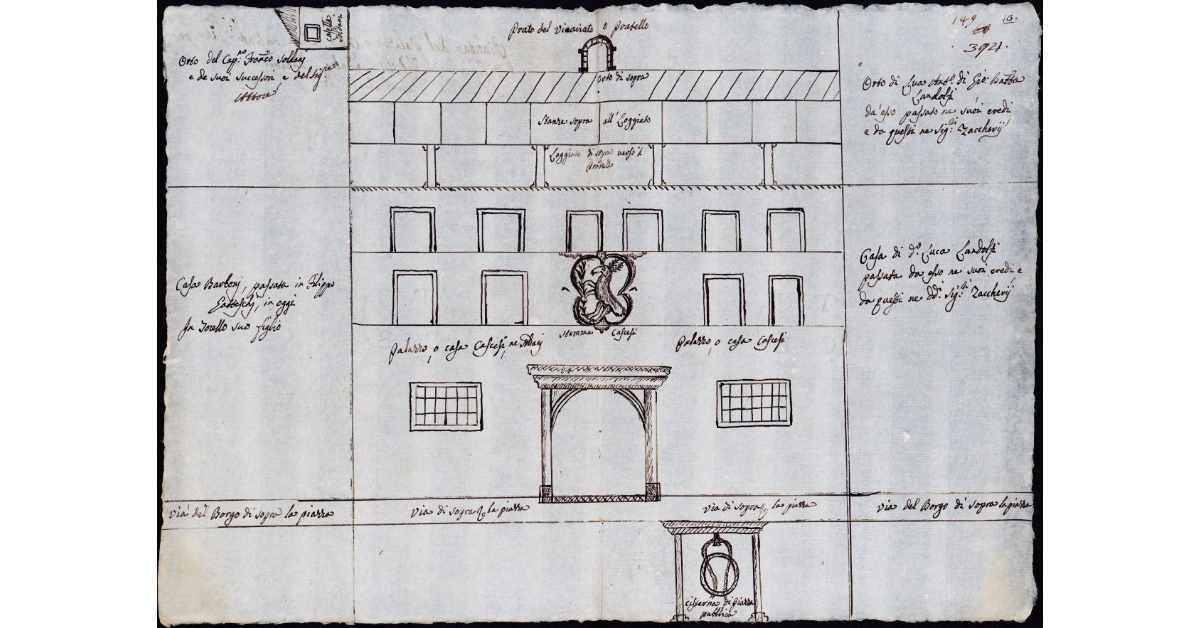 Prato del Vicariato o Pratello
149
13.
3921.
Orto del Cap.no Franc.o Soldanj
e de suoi successori e del Sig.re
Orto di sopra
Orto di Luca Ant.o di Gio: Batt.a
Landolfi
da esso passato ne suoi eredi
e da questi ne Sig.ri Zaccherij
Stanze sopra all' Loggiato
Loggiato di sopra verso il
Pratello
Casa Barbonj, passata in Filippo
in oggi
In Torello suo figlio
Casa di d.o Luca Landolfi
passata da esso ne suoi eredi e
da questi ne dd.i Sig.ri Zaccherij
Stemma Cascesi
Palazzo, o casa Cascesi, ne
Palazzo, o casa Cascesi
via del Borgo di sopra la piazza
via di sopra la piazza
via di sopra la piazza
via del Borgo di sopra la piazza
cisterna di piazza
pubblica